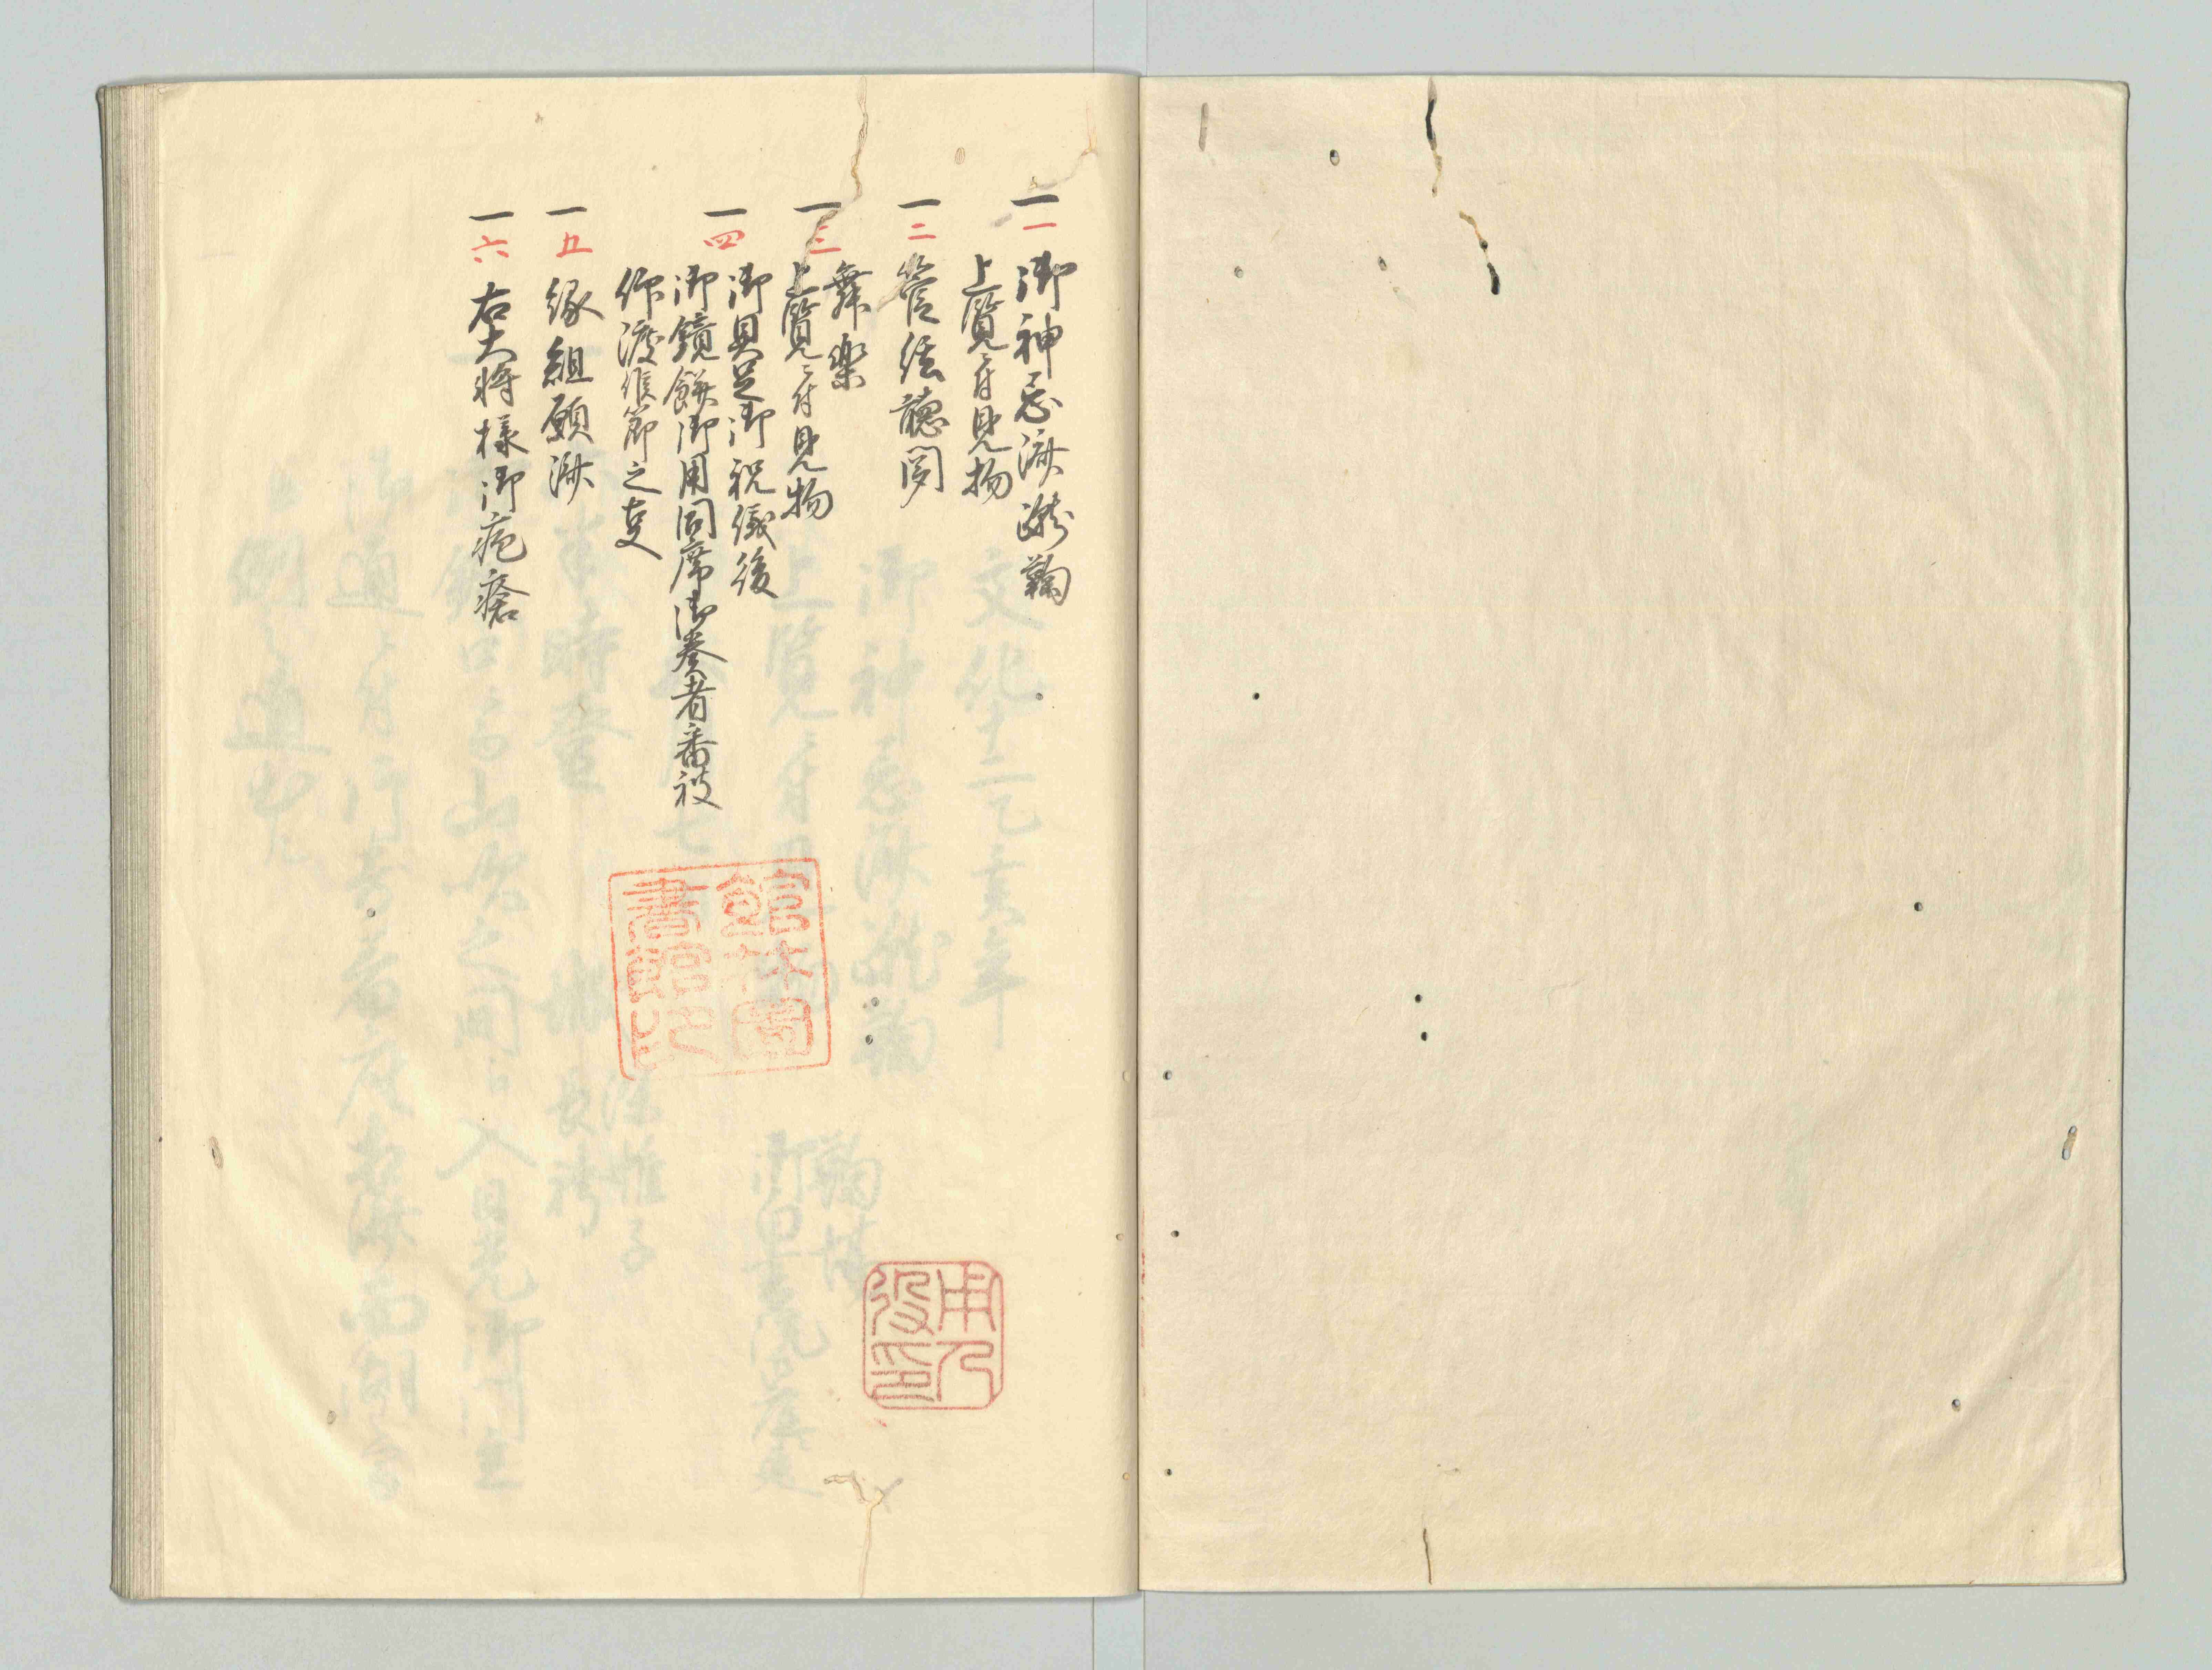 一 一 御神忌済蹴鞠
上覧ニ付見物
一 二 管絃聴聞
舞楽
一 三 上覧ニ付見物
一 四 御具足御祝儀後
御鏡餅御用同席御奏者番被
仰渡候節之事
一 五 縁組願済
一 六 右大将様御疱瘡
館林図
書館印
用人
役印